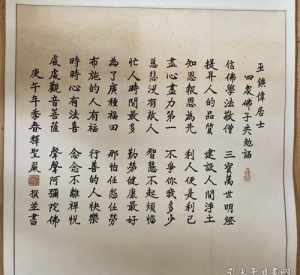 巫鎮偉居士
四眾佛子共勉語
信佛學法敬僧 三寶萬世明燈
提昇人的品質 建設人間淨土
知恩報恩為先 利人便是利己
盡心盡力第一 不爭你我多少
慈悲沒有敵人 智慧不起煩惱
忙人時間最多 勤勞健康最好
為了廣種福田 那怕任怨任勞
布施的人有福 行善的人快樂
時時心有法喜 念念不離禪悅
處處觀音菩薩 聲聲阿彌陀佛
庚午年季春釋聖嚴 撰並書